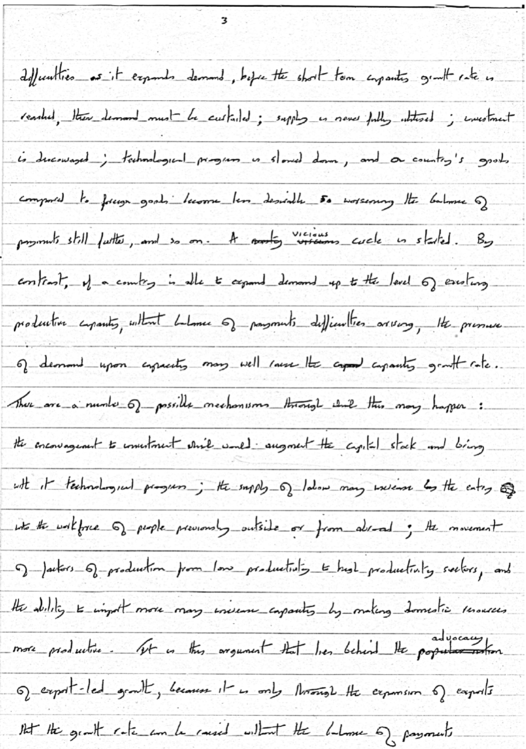 3
difficulties as it expands demand, before the short term capacity growth rate is
reached, then demand must be curtailed; supply is never fully utilised; investment
is discouraged; technological progress is slowed down, and a country's goods
compared to foreign goods become less desirable so worsening the balance of
payments still further, and so on. A vicious circle is started. By
contrast, if a country is able to expand demand up to the level of existing
productive capacity, without balance of payments difficulties arising, the pressure
of demand upon capacity may well raise the capacity growth rate.
There are a number of possible mechanisms through which this may happen:
the encouragement to investment which would augment the capital stock and bring
with it technological progress; the supply of labour may increase by the entry
into the workforce of people previously outside or from abroad; the movement
of factors of production from low productivity to high productivity sectors, and
the ability to import more may increase capacity by making domestic resources
more productive. It is this argument that lies behind the advocacy
of export-led growth, because it is only through the expansion of exports
that the growth rate can be raised without the balance of payments